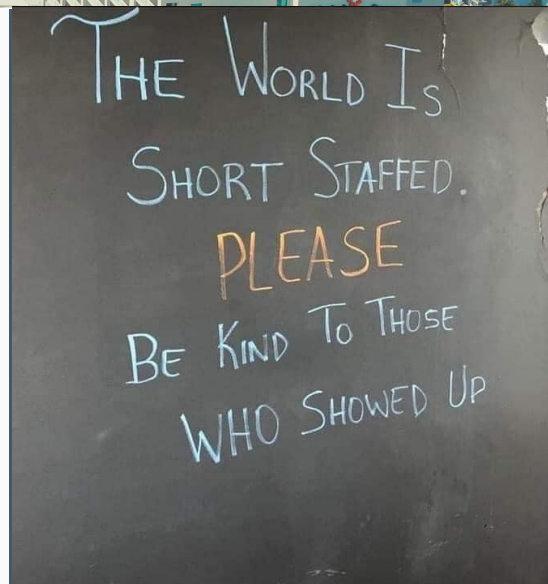 THE WORLD IS
SHORT STAFFED.
PLEASE
BE KIND TO THOSE
WHO SHOWED UP